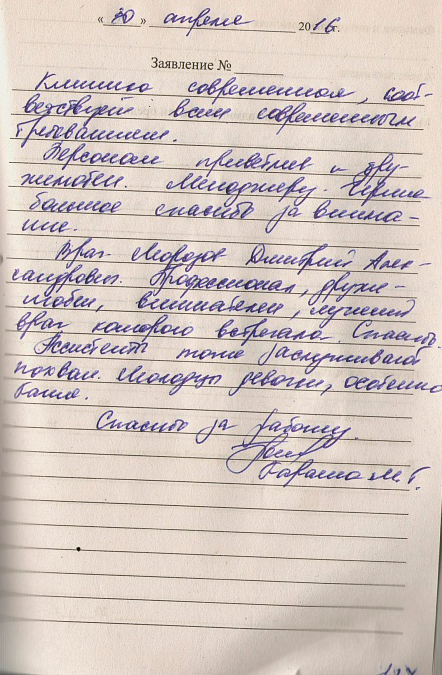 «20» апреля 2016 г.
Заявление №
Клиника современная, соот-
ветствует всем современным
требованиям.
Персонал приветлив и дру-
желюбен. Менеджеру
большое спасибо за внима-
ние.
Врач Морозов Дмитрий Алек-
сандрович. Профессионал, друже-
любен, внимателен, лучший
врач которого встречала. Спасибо.
Ассистенты тоже заслуживают
похвал. Молодцы девочки, особенно
Спасибо за работу.
М. Г.